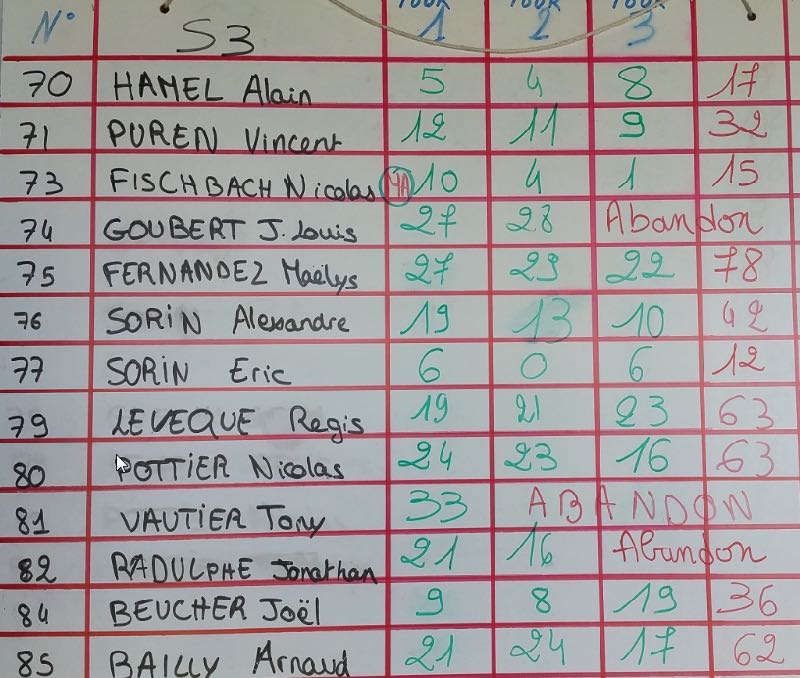 N° S3 TOUR 1 TOUR 2 TOUR 3
70 HAMEL Alain 5 4 8 17
71 PUREN Vincent 12 11 9 32
73 FISCHBACH Nicolas MA 10 4 1 15
74 GOUBERT J. Louis 27 28 Abandon
75 FERNANDEZ Maëlys 27 29 22 78
76 SORiN Alexandre 19 13 10 42
77 SORiN Eric 6 0 6 12
79 LEVEQUE Regis 19 21 23 63
80 POTTiER Nicolas 24 23 16 63
81 VAUTiER Tony 33 ABANDON
82 RADULPHE Jonathan 21 16 Abandon
84 BEUCHER Joël 9 8 19 36
85 BAILLY Arnaud 21 24 17 62